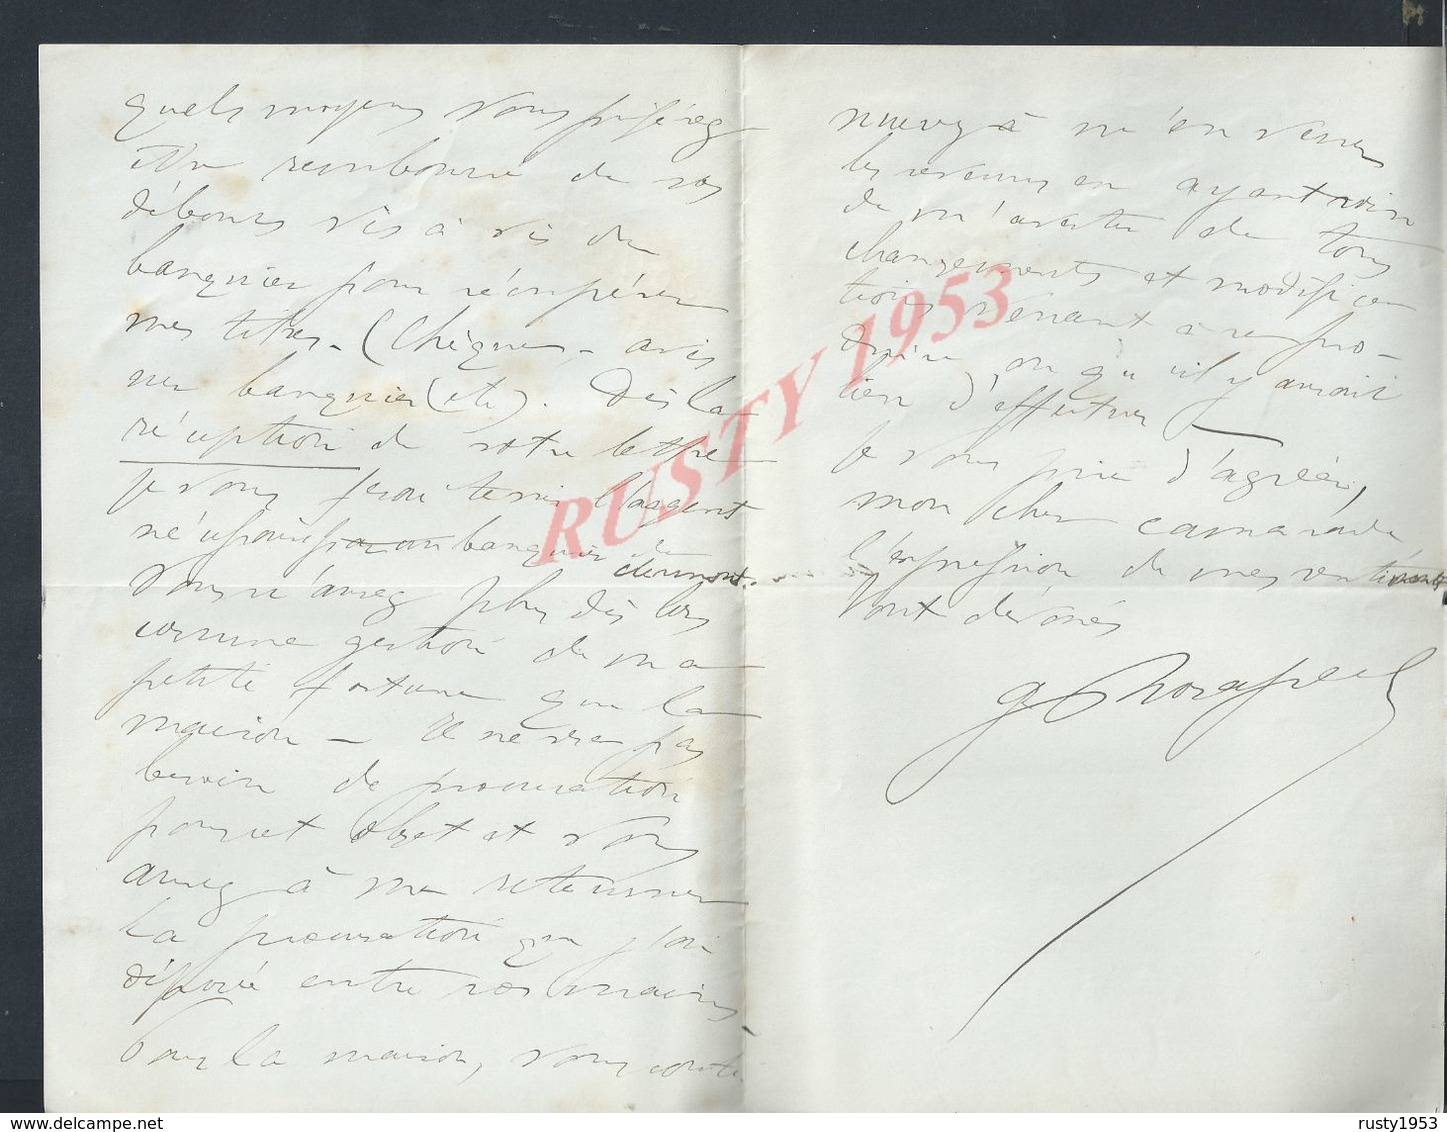 quels moyens vous préférez
être remboursé de vos
débours vis à vis du
banquier pour récupérer
mes titres. (Chèques, avis
banquier (etc). Dès la
réception de votre lettre
je vous ferai tenir l'argent
nécessaire banquier de
clermont.
Vous n'aurez plus dès lors
comme gestion de ma
petite fortune que la
maison – Il ne sera pas
besoin de procuration
pour cet objet et vous
aurez à me retourner
la procuration que j'ai
déposée entre vos mains
Pour la maison, vous conti
nuerez à m'en verser
les revenus en ayant soin
de m'avertir de tous
changements et modifica
tions venant à se pro-
duire ou qu'il y aurait
lieu d'effectuer
Je vous prie d'agréer,
mon cher camarade
l'expression de mes sentiments
tout dévoués
RUSTY 1953
www.delcampe.net
rusty1953